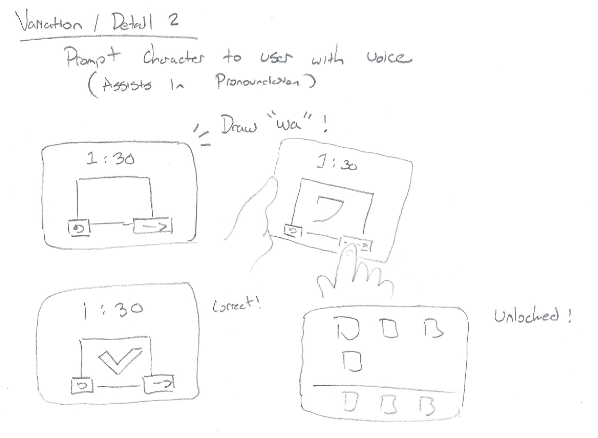 Variation / Detail 2
Prompt character to user with voice
(Assists in Pronounciation)
Draw "wa"!
1:30
1:30
1:30
Correct!
Unlocked!